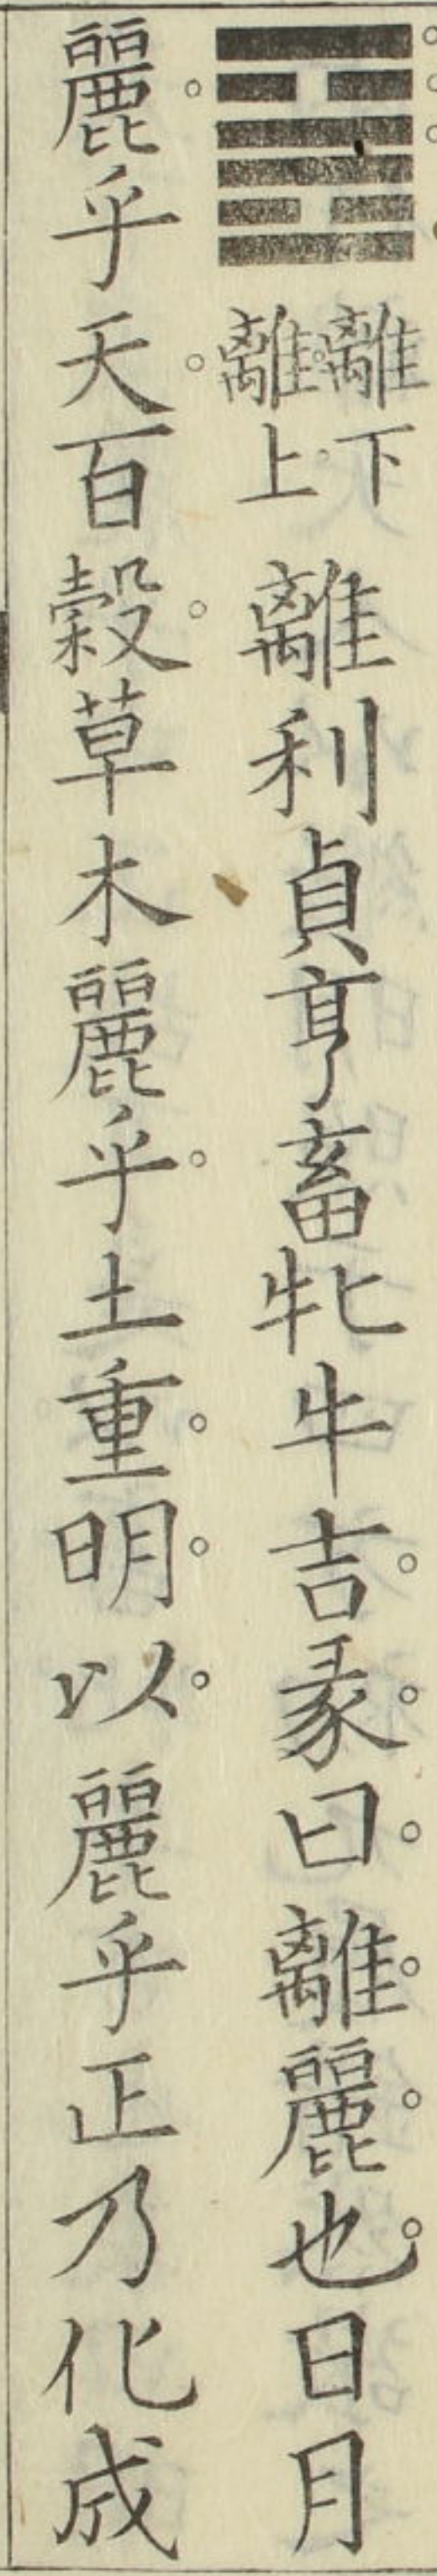 離下
離上
離利貞亨畜牝牛吉彖曰離麗也日月
麗乎天百穀草木麗乎土重明以麗乎正乃化成